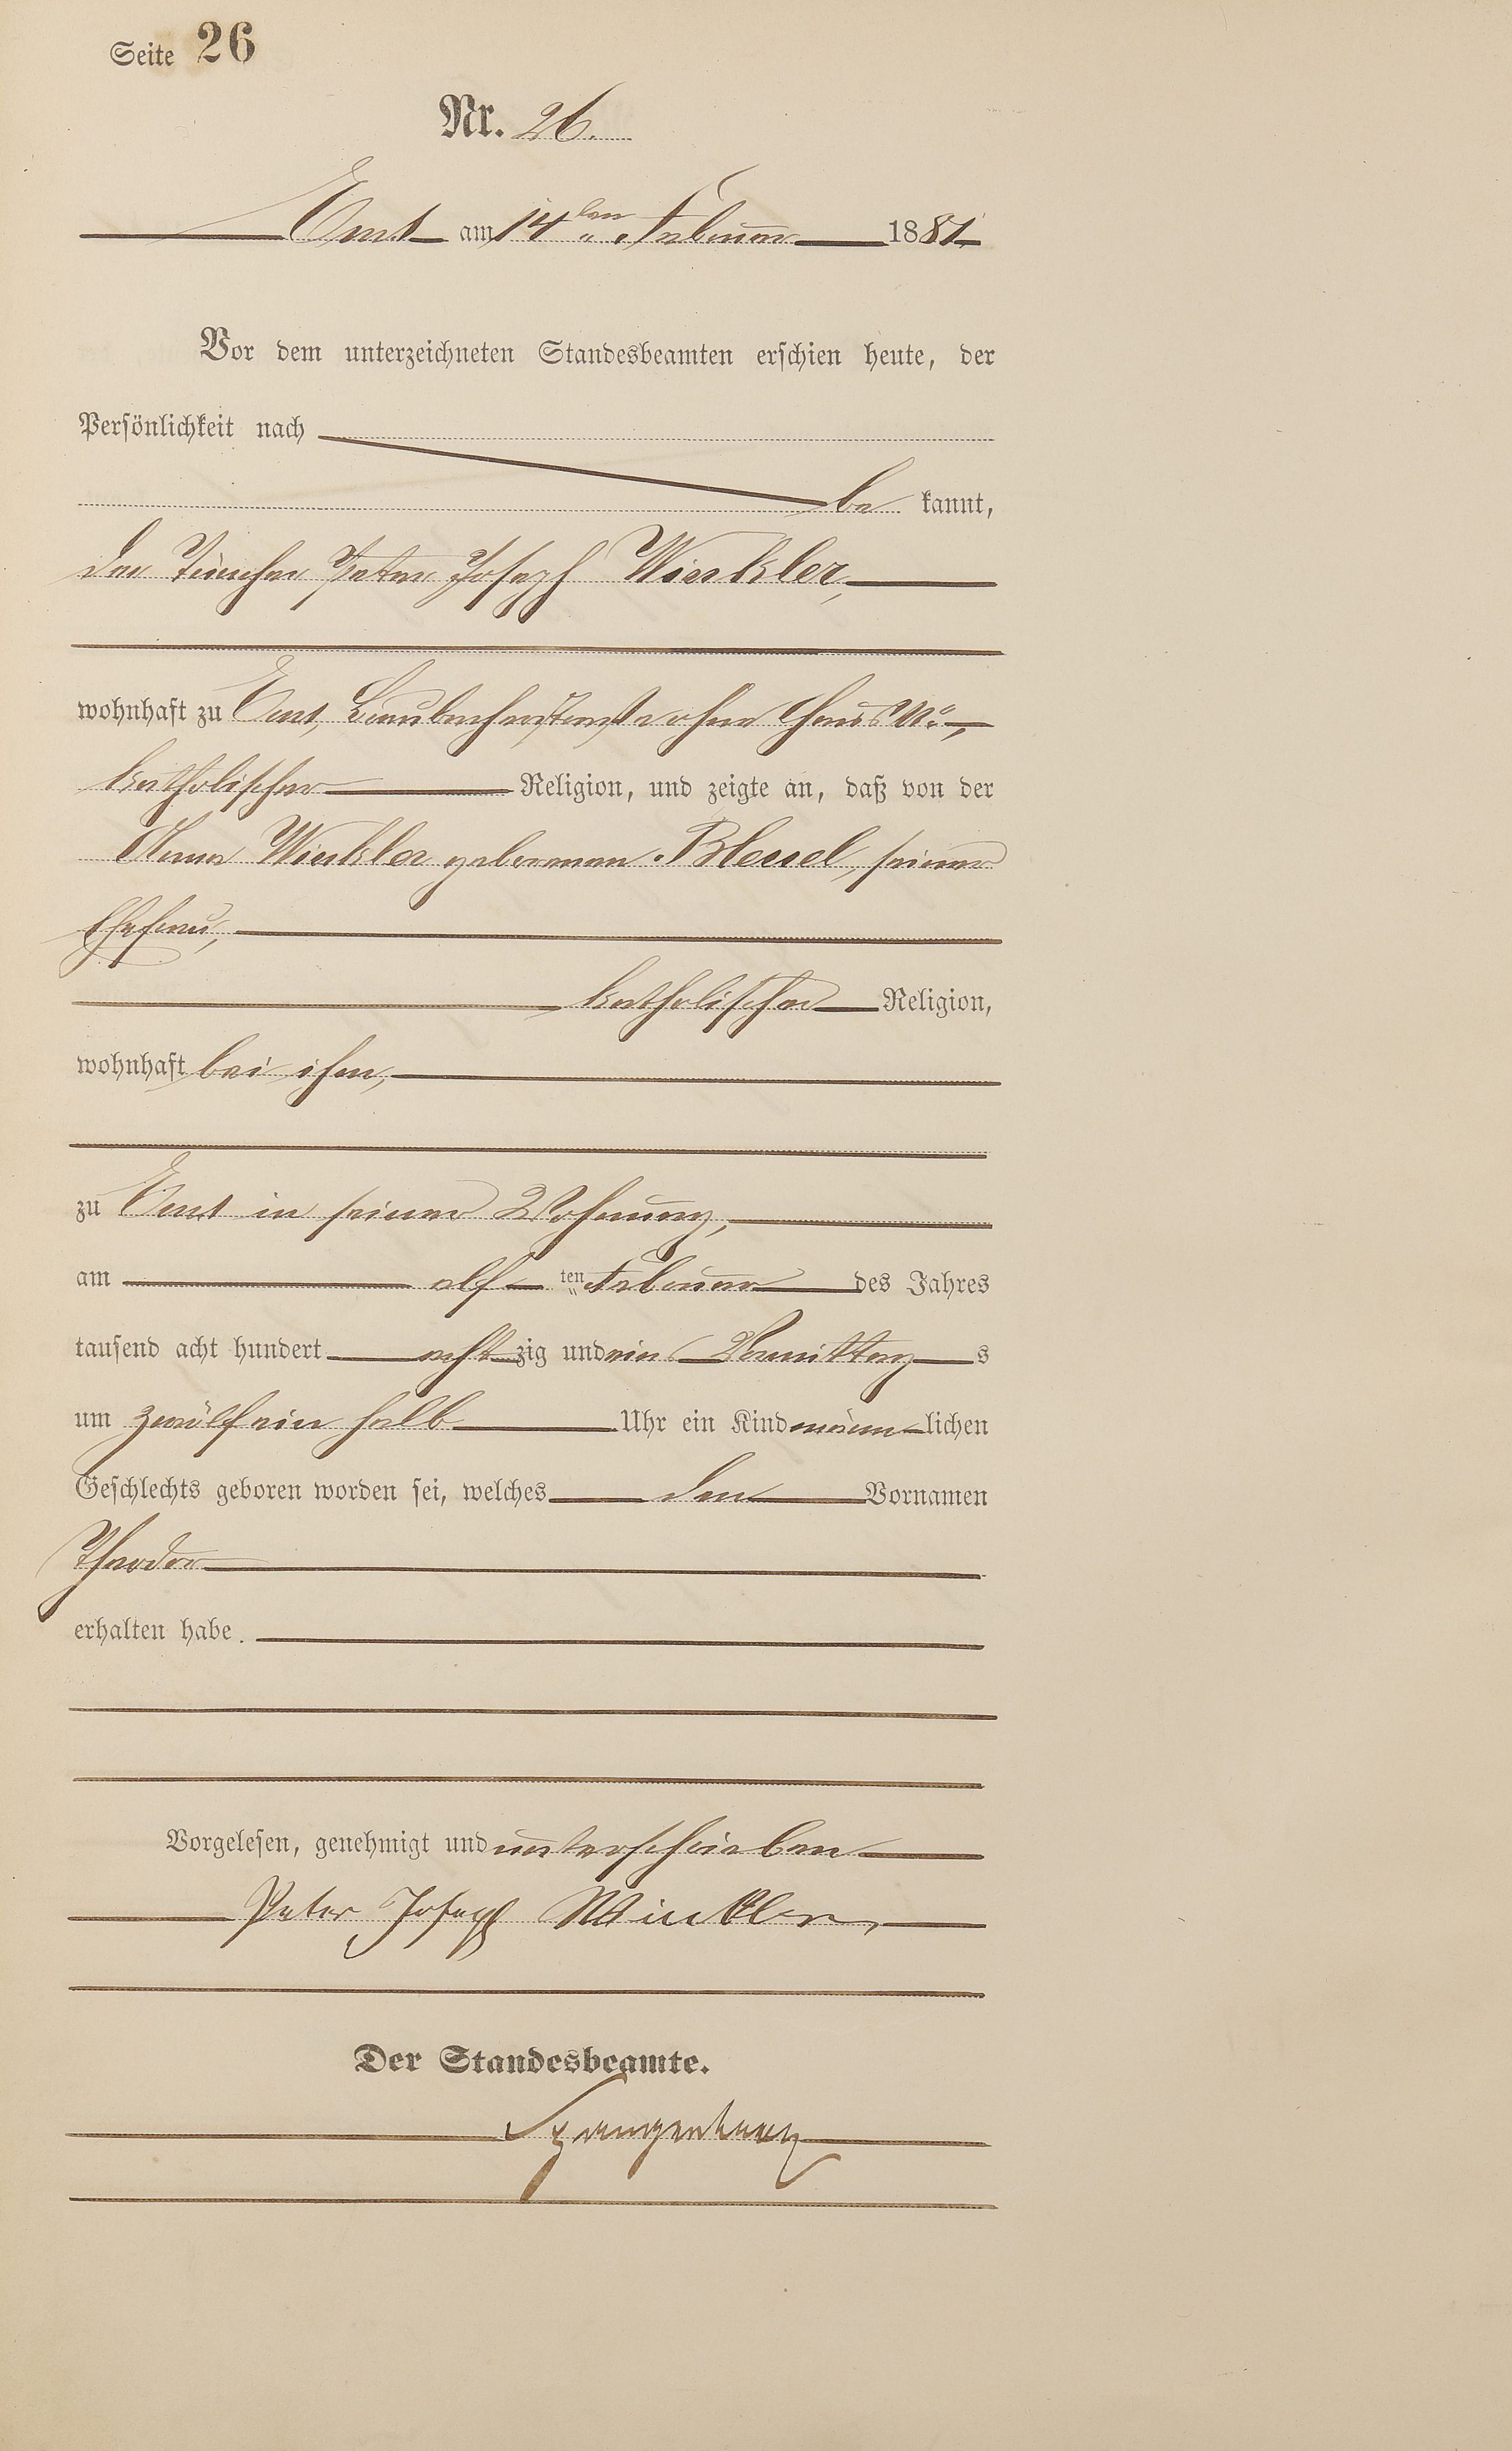 Seite 26
Nr. 26.
Ems am 14ten Februar 1881
Vor dem unterzeichneten Standesbeamten erschien heute, der
Persönlichkeit nach
be kannt,
der Tüncher Peter Joseph Winkler,
wohnhaft zu Ems, ohne Haus No,
katholischer Religion, und zeigte an, daß von der
Anna Winkler geborenen seiner
Ehefrau,
katholischer Religion,
wohnhaft bei ihm,
zu Ems in seiner Wohnung,
am elf ten Februar des Jahres
tausend acht hundert acht zig und ein Vormittag s
um zwölf ein halb Uhr ein Kind männ lichen
Geschlechts geboren worden sei, welches den Vornamen
Theodor
erhalten habe.
Vorgelesen, genehmigt und unterschrieben
Peter Joseph Winkler,
Der Standesbeamte.
Spangenberg